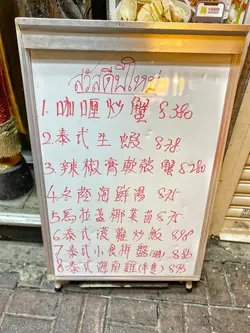 สวัสดีปีใหม่
1. 咖喱炒蟹 $380
2 泰式生蝦 $78
3. 辣椒膏軟殼蟹 $280
4 冬蔭海鮮湯 $75
5 馬拉盞椰菜苗 $75
6 泰式菠蘿炒飯 $88
7 泰式小食拼盤
8 泰式